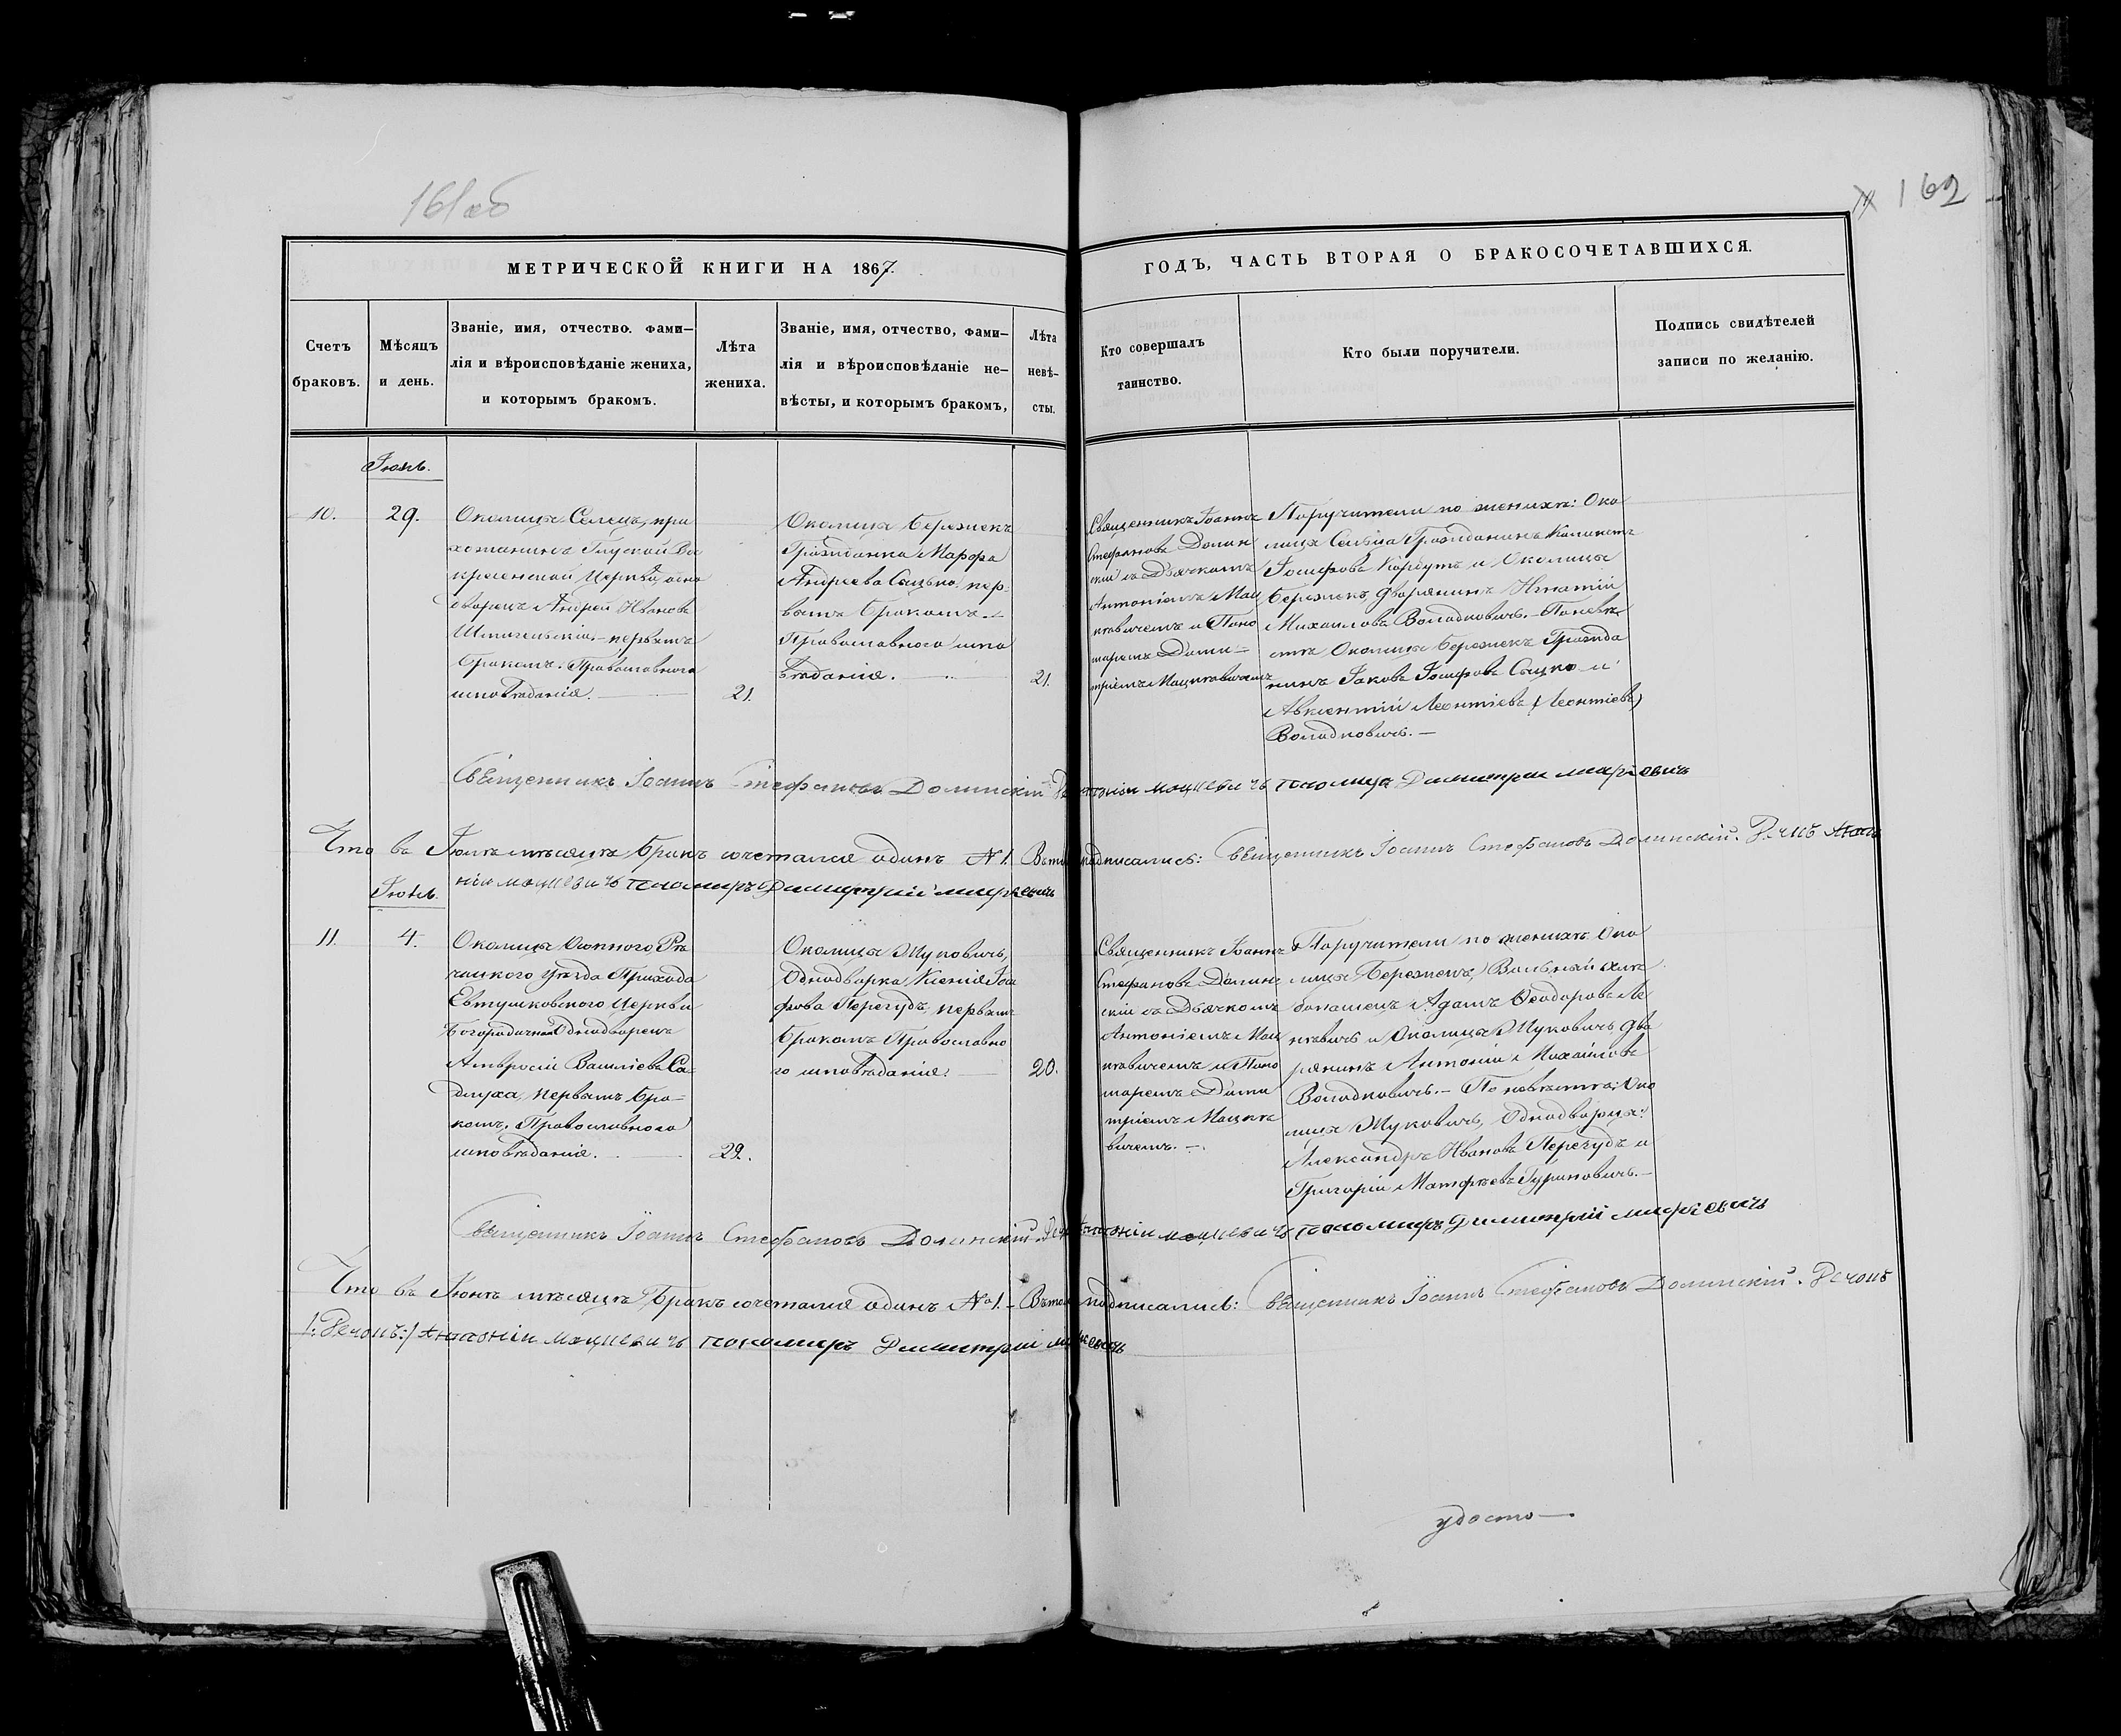 161 об
162
МЕТРИЧЕСКОЙ КНИГИ НА 1867.
ГОДЪ, ЧАСТЬ ВТОРАЯ О БРАКОСОЧЕТАВШИХСЯ.
Счетъ
браковъ.
Мѣсяцъ
и день.
Званіе, имя, отчество. фами-
лія и вѣроисповѣданіе жениха,
и которымъ бракомъ.
Лѣта
жениха.
Званіе, имя, отчество, фами-
лія и вѣроисповѣданіе не-
вѣсты, и которымъ бракомъ,
Лѣта
невѣ-
сты.
Кто совершалъ
таинство.
Кто были поручители.
Подпись свидѣтелей
записи по желанію.
10.
29.
Околицы Селецъ, при
хожанинъ Глуской Во
кресенской Церкви, одно
дворецъ Андрей Ивановъ
первымъ
бракомъ. Православнаго
исповѣданія.
21.
Околицы Бережекъ
Гражданка Марфа
Андреева Сацько пер
вымъ бракомъ
Православного испо
вѣданія.
21.
Священникъ Іоаннъ
Стефановъ Долин
скій съ Дьячкомъ
Антоніемъ Мац
кевичемъ и Поно
маремъ Дими
тріемъ Мацкевичемъ
Поручители по женихѣ: Око
лицы Сельца Гражданинъ
Іосифовъ и Околицы
Бережекъ, Дворянинъ Игнатій
Михаиловъ Володковичъ. По невѣ
стѣ Околицы Бережекъ Гражда
нинъ Іаковъ Іосифовъ Сацко и
Авксентій Леонтіевъ (Леонтіевъ)
Володковичъ.
Священникъ Іоаннъ Стефановъ Долинскій
Что въ мѣсяцѣ бракъ сочетался одинъ № 1. Въ томъ подписались: Священникъ Іоаннъ Стефановъ Долинскій.
11.
4.
Околицы Рѣ
чицкого уѣзда Прихода
Евтушковского Церкви
Богородичной Однодворецъ
Амвросій Василіевъ Са
длуха, первымъ бра=
комъ, Православного
исповѣданія.
29.
Околицы Жуковичъ,
Однодворка Ксенія Іоси
фова Перегудъ, первымъ
бракомъ Православно
го исповѣданія.
20.
Священникъ Іоаннъ
Стефановъ Долин
скій съ Дьячкомъ
Антоніемъ Мац
кевичемъ и Поно
маремъ Дими
тріемъ Мацке
вичемъ.
Поручители по женихѣ: Око
лицы Бережекъ, Вольный
Адамъ Ѳеодоровъ Ле
и Околицы Жуковичъ Дво
рянинъ Антоній Михаиловъ
Володковичъ. По невѣстѣ: Око
лицы Жуковичъ, Однодворцы:
Александръ Ивановъ Перегудъ и
Григорій Матфѣевъ Гуриновичъ.
Священникъ Іоаннъ Стефановъ Долинскій
Что въ мѣсяцѣ бракъ сочетался одинъ № 1. Въ томъ подписались: Священникъ Іоаннъ Стефановъ Долинскій.
удосто